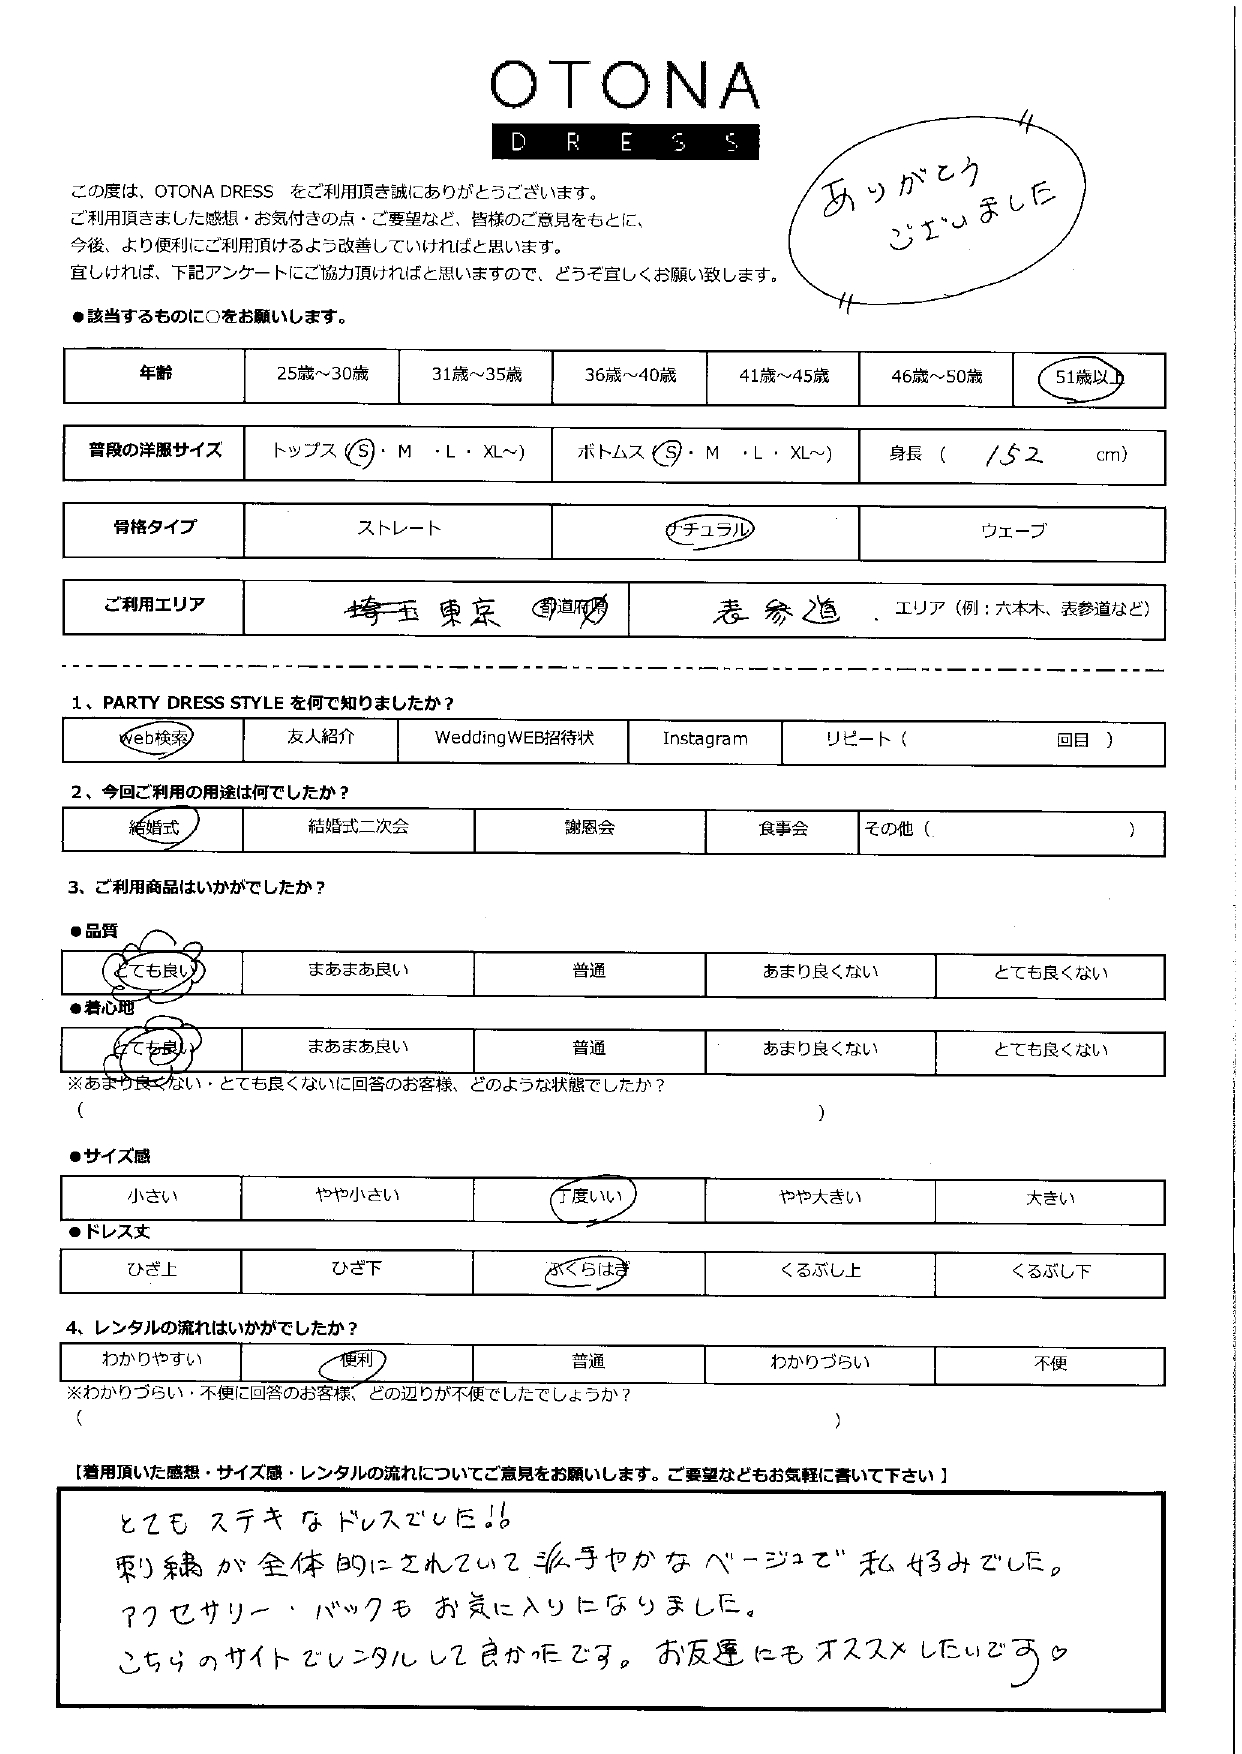 OTONA
DRESS
ありがとう
ございました
この度は、OTONA DRESS をご利用頂き誠にありがとうございます。
ご利用頂きました感想・お気付きの点・ご要望など、皆様のご意見をもとに、
今後、より便利にご利用頂けるよう改善していければと思います。
宜しければ、下記アンケートにご協力頂ければと思いますので、どうぞ宜しくお願い致します。
●該当するものに○をお願いします。
年齢 25歳～30歳 31歳～35歳 36歳～40歳 41歳～45歳 46歳～50歳 51歳以上
普段の洋服サイズ トップス (S・ M ・L ・ XL～) ボトムス (S・ M ・L ・ XL～) 身長 ( 152 cm)
骨格タイプ ストレート ナチュラル ウェーブ
ご利用エリア 埼玉 東京 都道府県 表参道 . エリア（例：六本木、表参道など）
1、PARTY DRESS STYLE を何で知りましたか？
Web検索 友人紹介 WeddingWEB招待状 Instagram リピート（ 回目 ）
2、今回ご利用の用途は何でしたか？
結婚式 結婚式二次会 謝恩会 食事会 その他（ ）
3、ご利用商品はいかがでしたか？
●品質
とても良い まあまあ良い 普通 あまり良くない とても良くない
●着心地
とても良い まあまあ良い 普通 あまり良くない とても良くない
※あまり良くない・とても良くないに回答のお客様、どのような状態でしたか？
( )
●サイズ感
小さい やや小さい 丁度いい やや大きい 大きい
●ドレス丈
ひざ上 ひざ下 ふくらはぎ くるぶし上 くるぶし下
4、レンタルの流れはいかがでしたか？
わかりやすい 便利 普通 わかりづらい 不便
※わかりづらい・不便に回答のお客様、どの辺りが不便でしたでしょうか？
( )
【着用頂いた感想・サイズ感・レンタルの流れについてご意見をお願いします。ご要望などもお気軽に書いて下さい】
とても ステキ な ドレスでした!!
刺繍が全体的にされていて派手やかなベージュで私好みでした。
アクセサリー・バックも お気に入りになりました。
こちらのサイトでレンタルして良かったです。お友達にもオススメしたいです♡